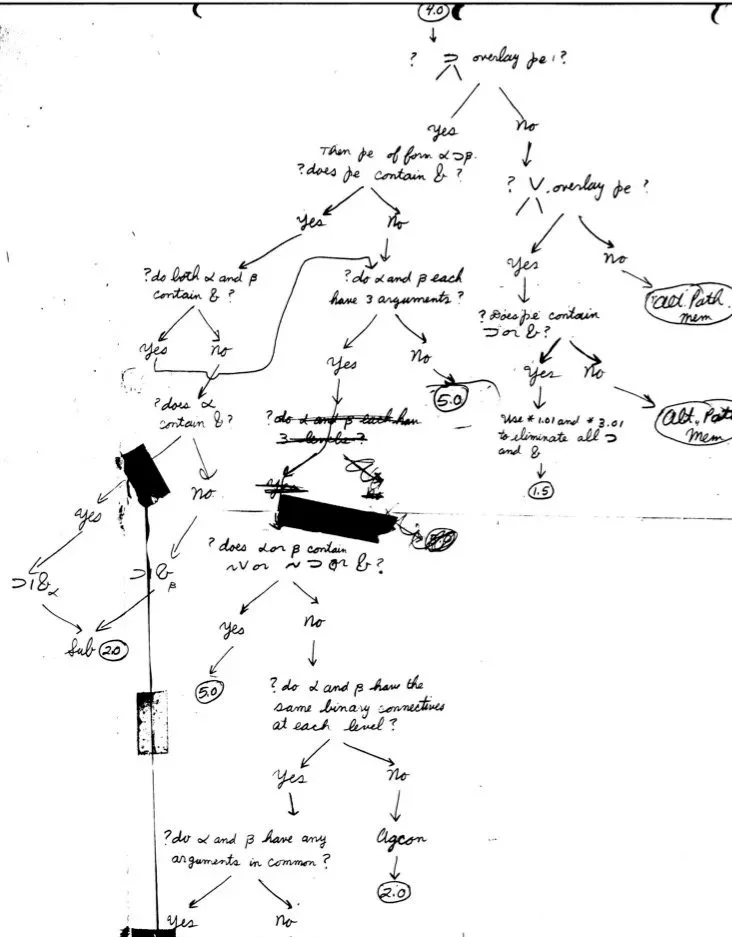 4.0
? ⊃ overlay pe 1?
Yes
No
Then pe of form α⊃β.
? does pe contain & ?
? V. overlay pe ?
Yes
No
Yes
No
? do both α and β
contain & ?
? do α and β each
have 3 arguments ?
Alt. Path
mem
? Does pe contain
⊃ or & ?
Yes
No
Yes
No
Yes
No
? does α
contain & ?
5.0
? do α and β each have
3 levels ?
Use *1.01 and *3.01
to eliminate all ⊃
and &
Alt. Path
Mem
Yes
No
Yes
No
1.5
? does α or β contain
~V or ~⊃ or & ?
⊃1&α
⊃1&β
Sub 2.0
Yes
No
5.0
? do α and β have the
same binary connectives
at each level ?
Yes
No
? do α and β have any
arguments in common ?
Agcon
2.0
Yes
No